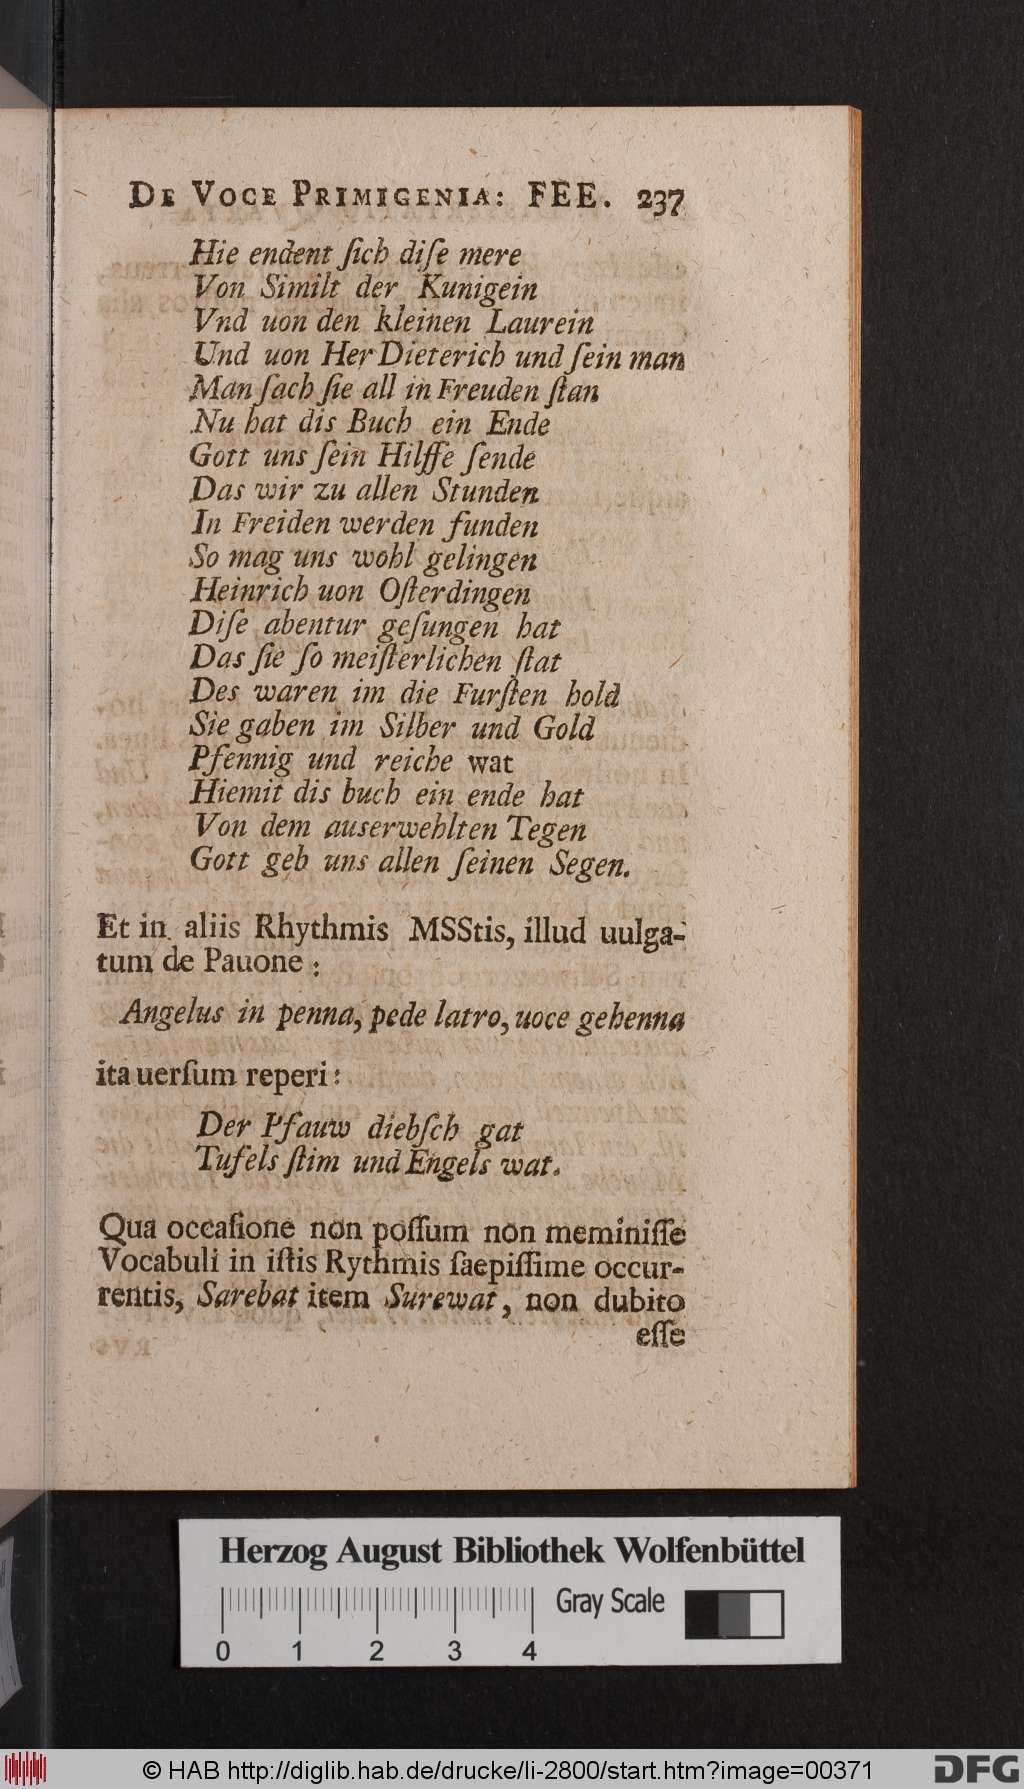 De Voce Primigenia: FEE. 237
Hie endent ſich diſe mere
Von Similt der Kunigein
Vnd uon den kleinen Laurein
Und uon Her Dieterich und ſein man
Man ſach ſie all in Freuden ſtan
Nu hat dis Buch ein Ende
Gott uns ſein Hilffe ſende
Das wir zu allen Stunden
In Freiden werden funden
So mag uns wohl gelingen
Heinrich uon Oſterdingen
Diſe abentur geſungen hat
Das ſie ſo meiſterlichen ſtat
Des waren im die Furſten hold
Sie gaben im Silber und Gold
Pfennig und reiche wat
Hiemit dis buch ein ende hat
Von dem auserwehlten Tegen
Gott geb uns allen ſeinen Segen.
Et in aliis Rhythmis MSStis, illud uulga-
tum de Pauone:
Angelus in penna, pede latro, uoce gehenna
ita uerſum reperi:
Der Pfauw diebſch gat
Tufels ſtim und Engels wat.
Qua occaſione non poſſum non meminiſſe
Vocabuli in iſtis Rythmis ſaepiſſime occur-
rentis, Sarebat item Surewat, non dubito
eſſe
Herzog August Bibliothek Wolfenbüttel
Gray Scale
0 1 2 3 4
© HAB http://diglib.hab.de/drucke/li-2800/start.htm?image=00371
DFG